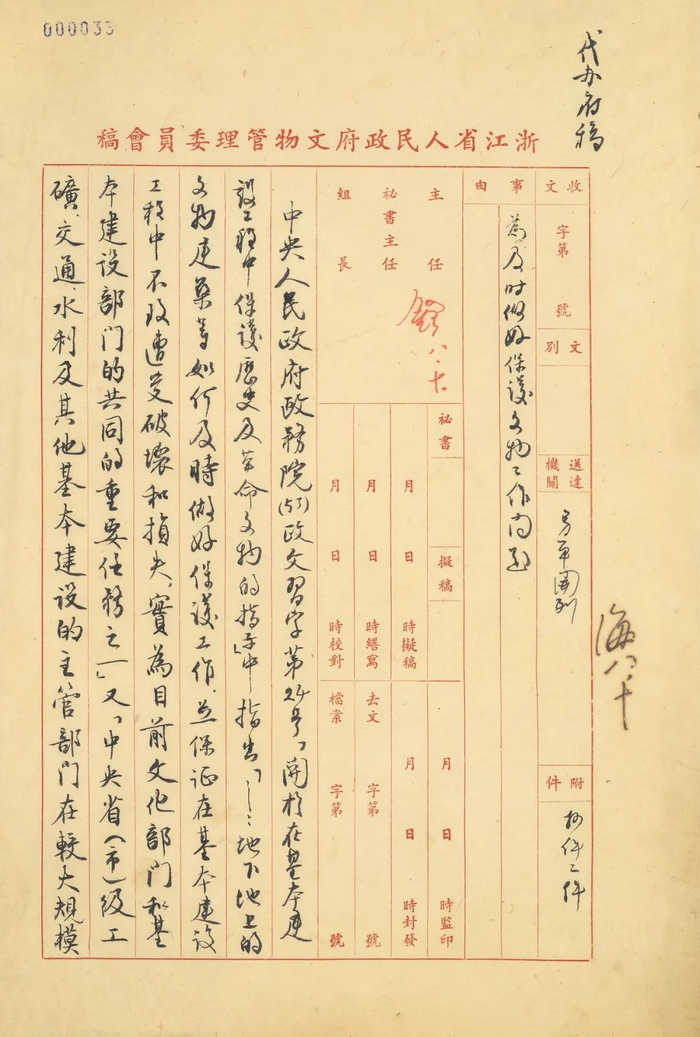 000033
代办府稿
浙江省人民政府文物管理委員會稿
收文 字第 號
文別
送達機關 另單開列
附件 抄件二件
事由 為及时做好保護文物工作由
主任
祕書主任
組長
八.十
祕書
擬稿
月 日 時擬稿
月 日 時繕寫
月 日 時校對
月 日 時監印
月 日 時封發
去文 字第 號
檔案 字第 號
海 八.十
中央人民政府政務院(53)政文習字第24号「関於在基本建
設工程中保護歷史及革命文物的指示」中指出「……地下地上的
文物建築等如何及時做好保護工作,並保证在基本建设
工程中不致遭受破壞和損失,實為目前文化部门和基
本建設部门的共同的重要任務之一」又「中央省(市)級工
礦、交通水利及其他基本建設的主管部门在較大規模